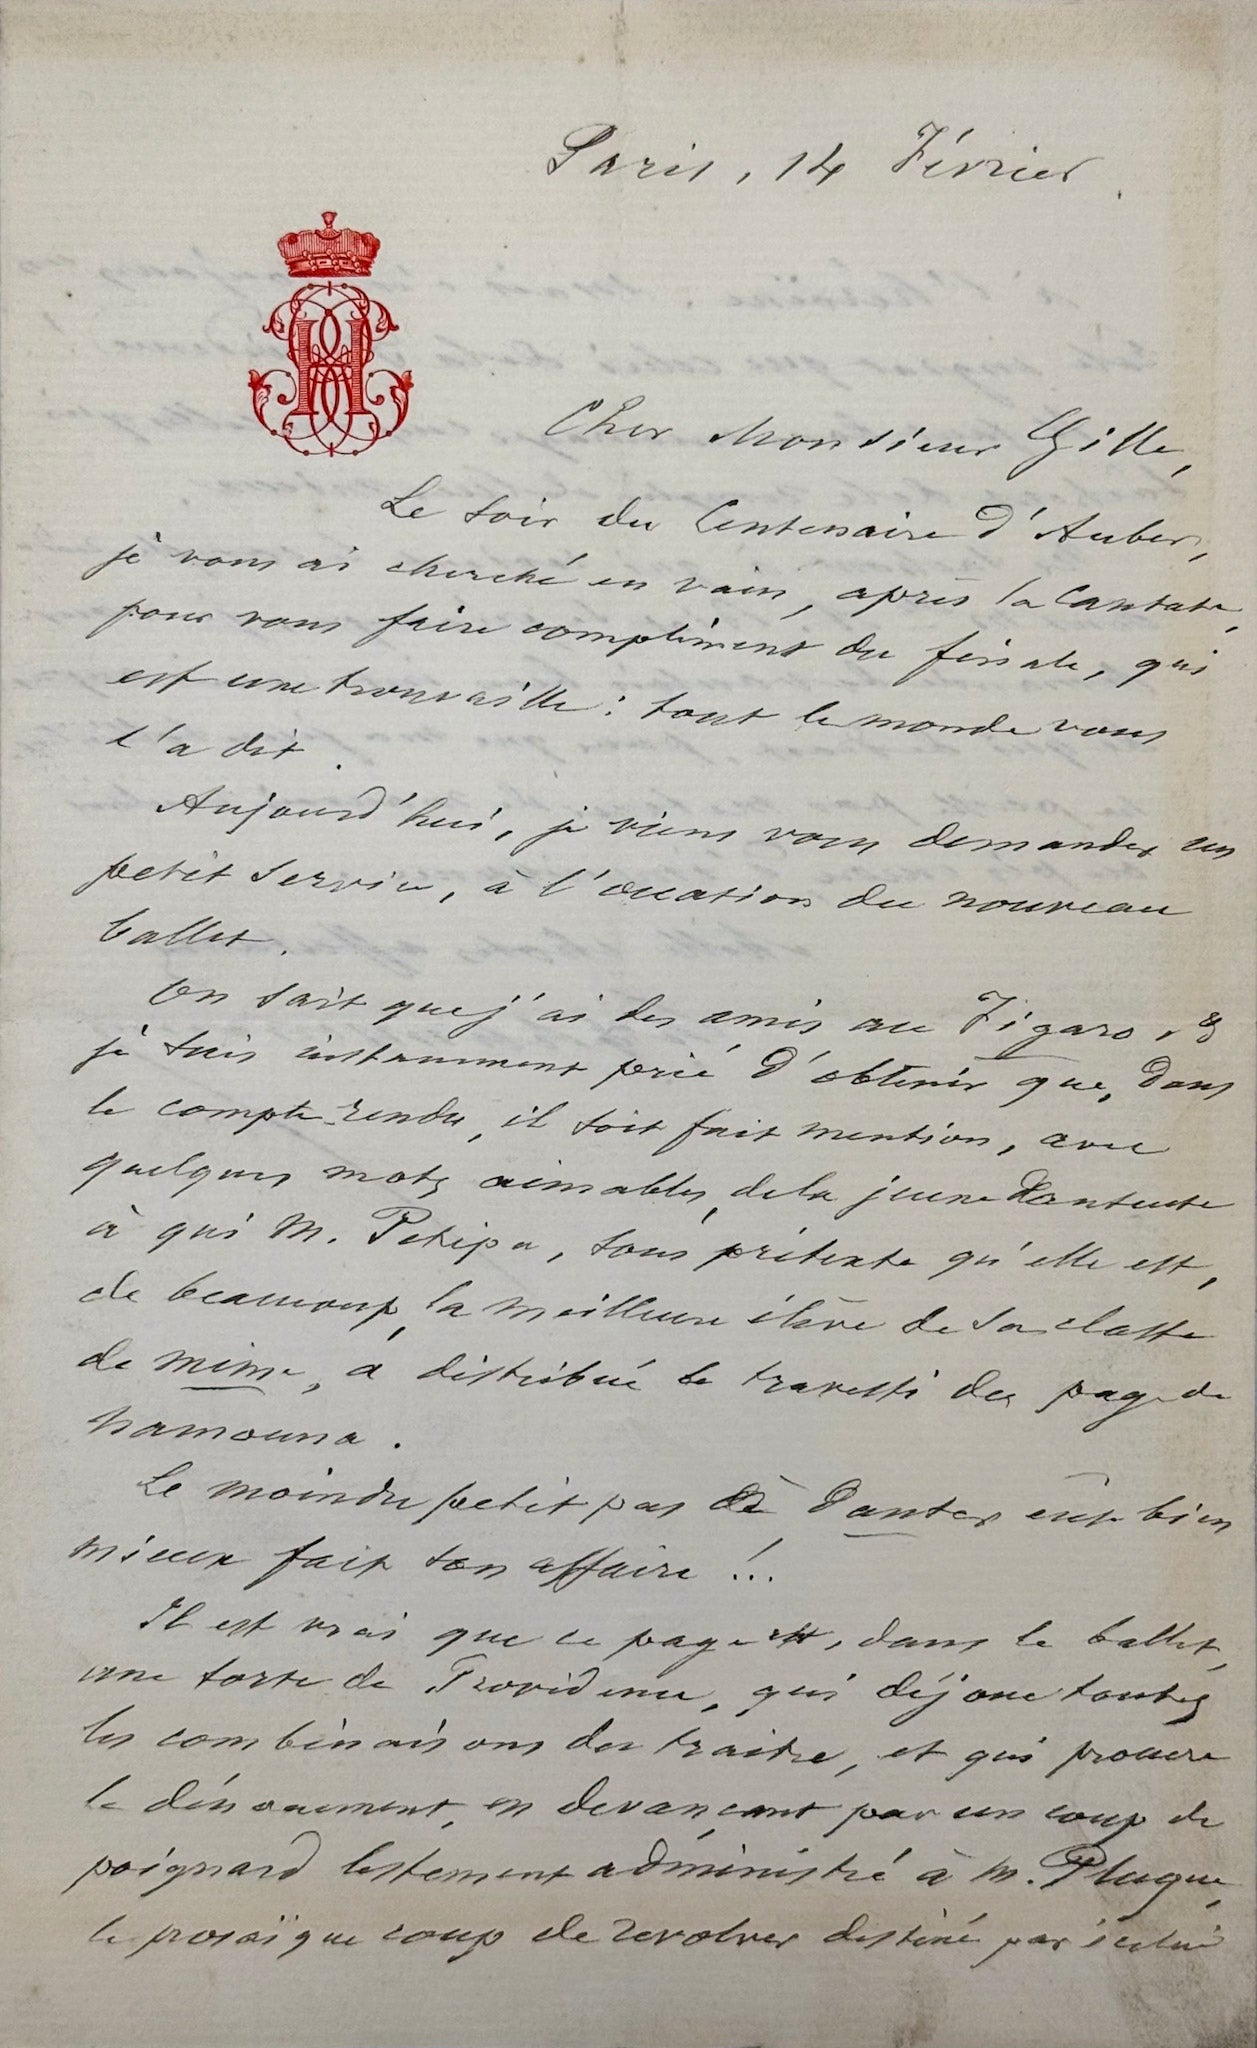 Paris, 14 Février
Cher Monsieur Gille,
Le soir du Centenaire d'Auber,
je vous ai cherché en vain, après la Cantate,
pour vous faire compliment du finale, qui
est une trouvaille : tout le monde vous
l'a dit.
Aujourd'hui, je viens vous demander un
petit service, à l'occasion du nouveau
ballet.
On sait que j'ai des amis au Figaro, &
je suis instamment prié d'obtenir que, dans
le compte-rendu, il soit fait mention, avec
quelques mots aimables, de la jeune danseuse
à qui M. Petipa, sous prétexte qu'elle est,
de beaucoup, la meilleure élève de sa classe
de mime, a distribué le travesti du page de
Namouna.
Le moindre petit pas à danser eût bien
mieux fait son affaire !..
Il est vrai que ce page est, dans le ballet,
une sorte de Providence, qui déjoue toutes
les combinaisons du traître, et qui procure
le dénouement, en devançant par un coup de
poignard lestement administré à M. Pluque,
le prosaïque coup de revolver destiné par icelui